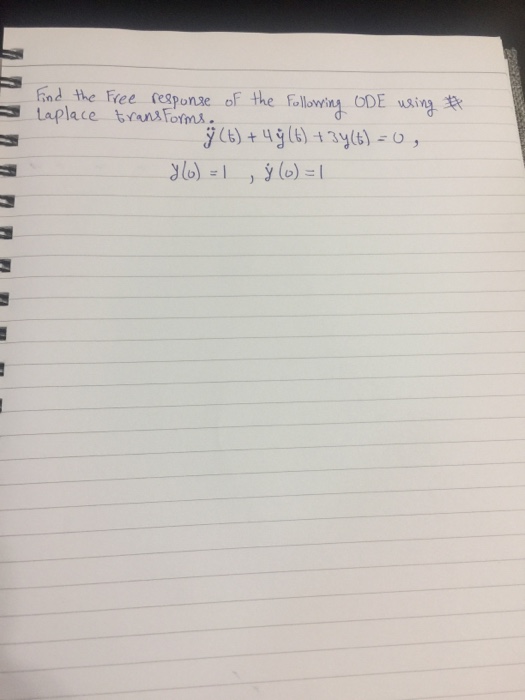 Find the Free response of the Following ODE using
Laplace transforms.
ÿ(t) + 4ẏ(t) + 3y(t) = 0,
y(0) = 1 , ẏ(0) = 1